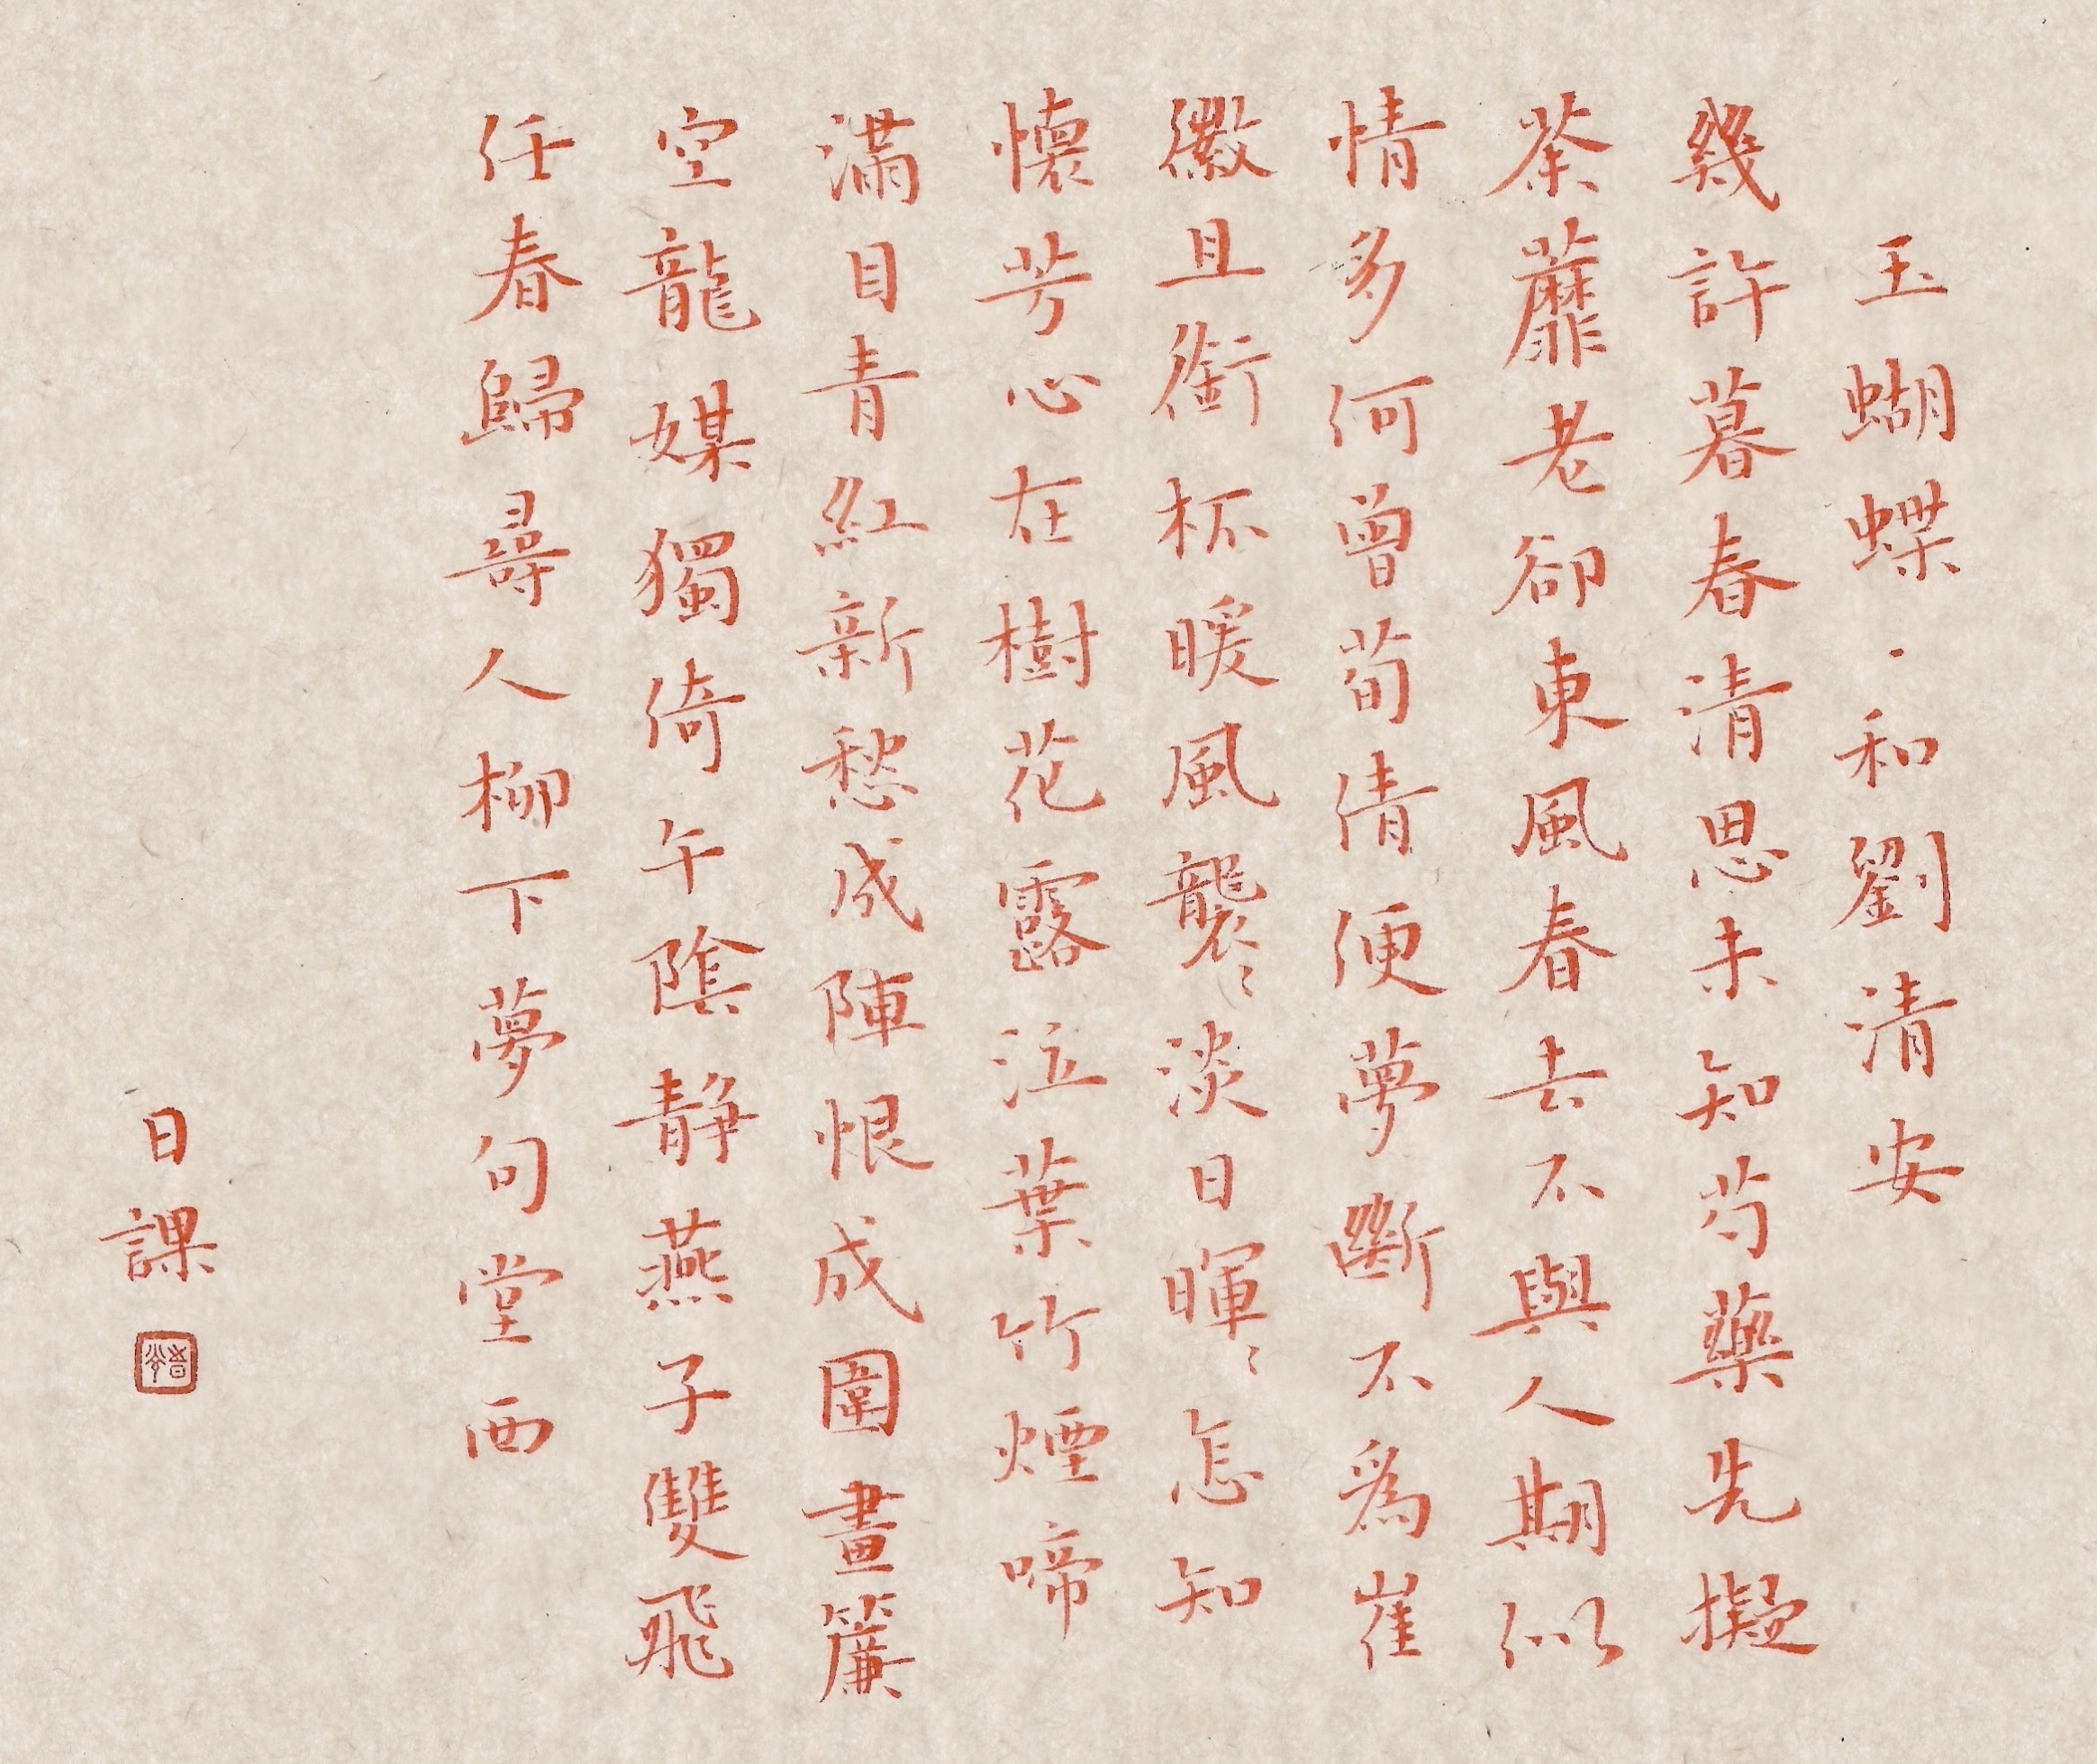 玉蝴蝶·和劉清安
幾許暮春清思未知芍藥先擬
荼蘼老卻東風春去不與人期似
情多何曾荀倩便夢斷不爲崔
徽且銜杯暖風襲〻淡日暉〻怎知
懷芳心在樹花露泣葉竹煙啼
滿目青紅新愁成陣恨成圍畫簾
空龍媒獨倚午陰靜燕子雙飛
任春歸尋人柳下夢句堂西
日課